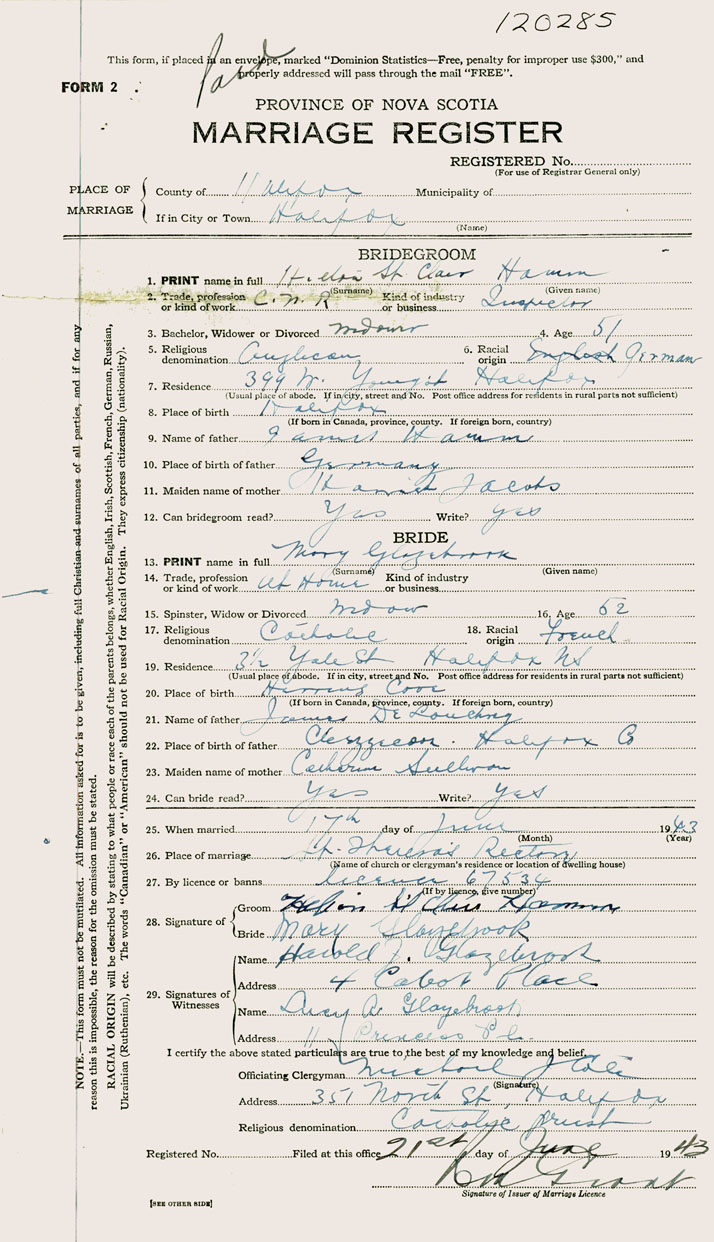 120285
This form, if placed in an envelope, marked "Dominion Statistics—Free, penalty for improper use $300," and
properly addressed will pass through the mail "FREE".
FORM 2
Paid
PROVINCE OF NOVA SCOTIA
MARRIAGE REGISTER
REGISTERED No.
(For use of Registrar General only)
PLACE OF MARRIAGE
County of Halifax Municipality of
If in City or Town Halifax
(Name)
BRIDEGROOM
1. PRINT name in full St. Clair Hamm
(Surname) (Given name)
2. Trade, profession or kind of work C.N.R Kind of industry or business Inspector
3. Bachelor, Widower or Divorced Widower 4. Age 51
5. Religious denomination Anglican 6. Racial origin English German
7. Residence 399 W. Young St Halifax
(Usual place of abode. If in city, street and No. Post office address for residents in rural parts not sufficient)
8. Place of birth Halifax
(If born in Canada, province, county. If foreign born, country)
9. Name of father James Hamm
10. Place of birth of father Germany
11. Maiden name of mother Jacobs
12. Can bridegroom read? Yes Write? yes
BRIDE
13. PRINT name in full Mary Glazebrook
(Surname) (Given name)
14. Trade, profession or kind of work At Home Kind of industry or business
15. Spinster, Widow or Divorced Widow 16. Age 52
17. Religious denomination Catholic 18. Racial origin French
19. Residence 3½ Yale St Halifax NS
(Usual place of abode. If in city, street and No. Post office address for residents in rural parts not sufficient)
20. Place of birth Herring Cove
(If born in Canada, province, county. If foreign born, country)
21. Name of father James
22. Place of birth of father Halifax Co
23. Maiden name of mother Catherine Sullivan
24. Can bride read? Yes Write? Yes
25. When married 17th day of June 1943
(Month) (Year)
26. Place of marriage St. Theresa's Rectory
(Name of church or clergyman's residence or location of dwelling house)
27. By licence or banns licence 67534
(If by licence, give number)
28. Signature of
Groom St Clair Hamm
Bride Mary Glazebrook
29. Signatures of Witnesses
Name Harold J. Glazebrook
Address 4 Cabot Place
Name A Glazebrook
Address 11 Princess Pl.
I certify the above stated particulars are true to the best of my knowledge and belief,
Officiating Clergyman Michael J
(Signature)
Address 351 North St, Halifax
Religious denomination Catholic Priest
Registered No. Filed at this office 21st day of June 1943
Grant
Signature of Issuer of Marriage Licence
[SEE OTHER SIDE]
NOTE.—This form must not be mutilated. All information asked for is to be given, including full Christian and surnames of all parties, and if for any
reason this is impossible, the reason for the omission must be stated.
RACIAL ORIGIN will be described by stating to what people or race each of the parents belongs, whether English, Irish, Scottish, French, German, Russian,
Ukrainian (Ruthenian), etc. The words "Canadian" or "American" should not be used for Racial Origin. They express citizenship (nationality).